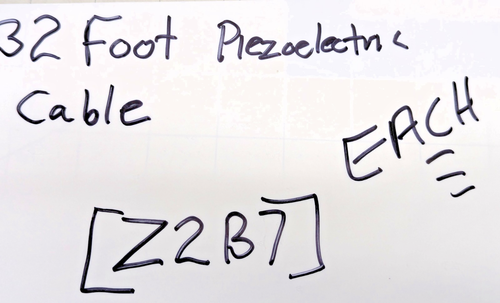 32 Foot Piezoelectric
Cable
EACH
[Z2B7]